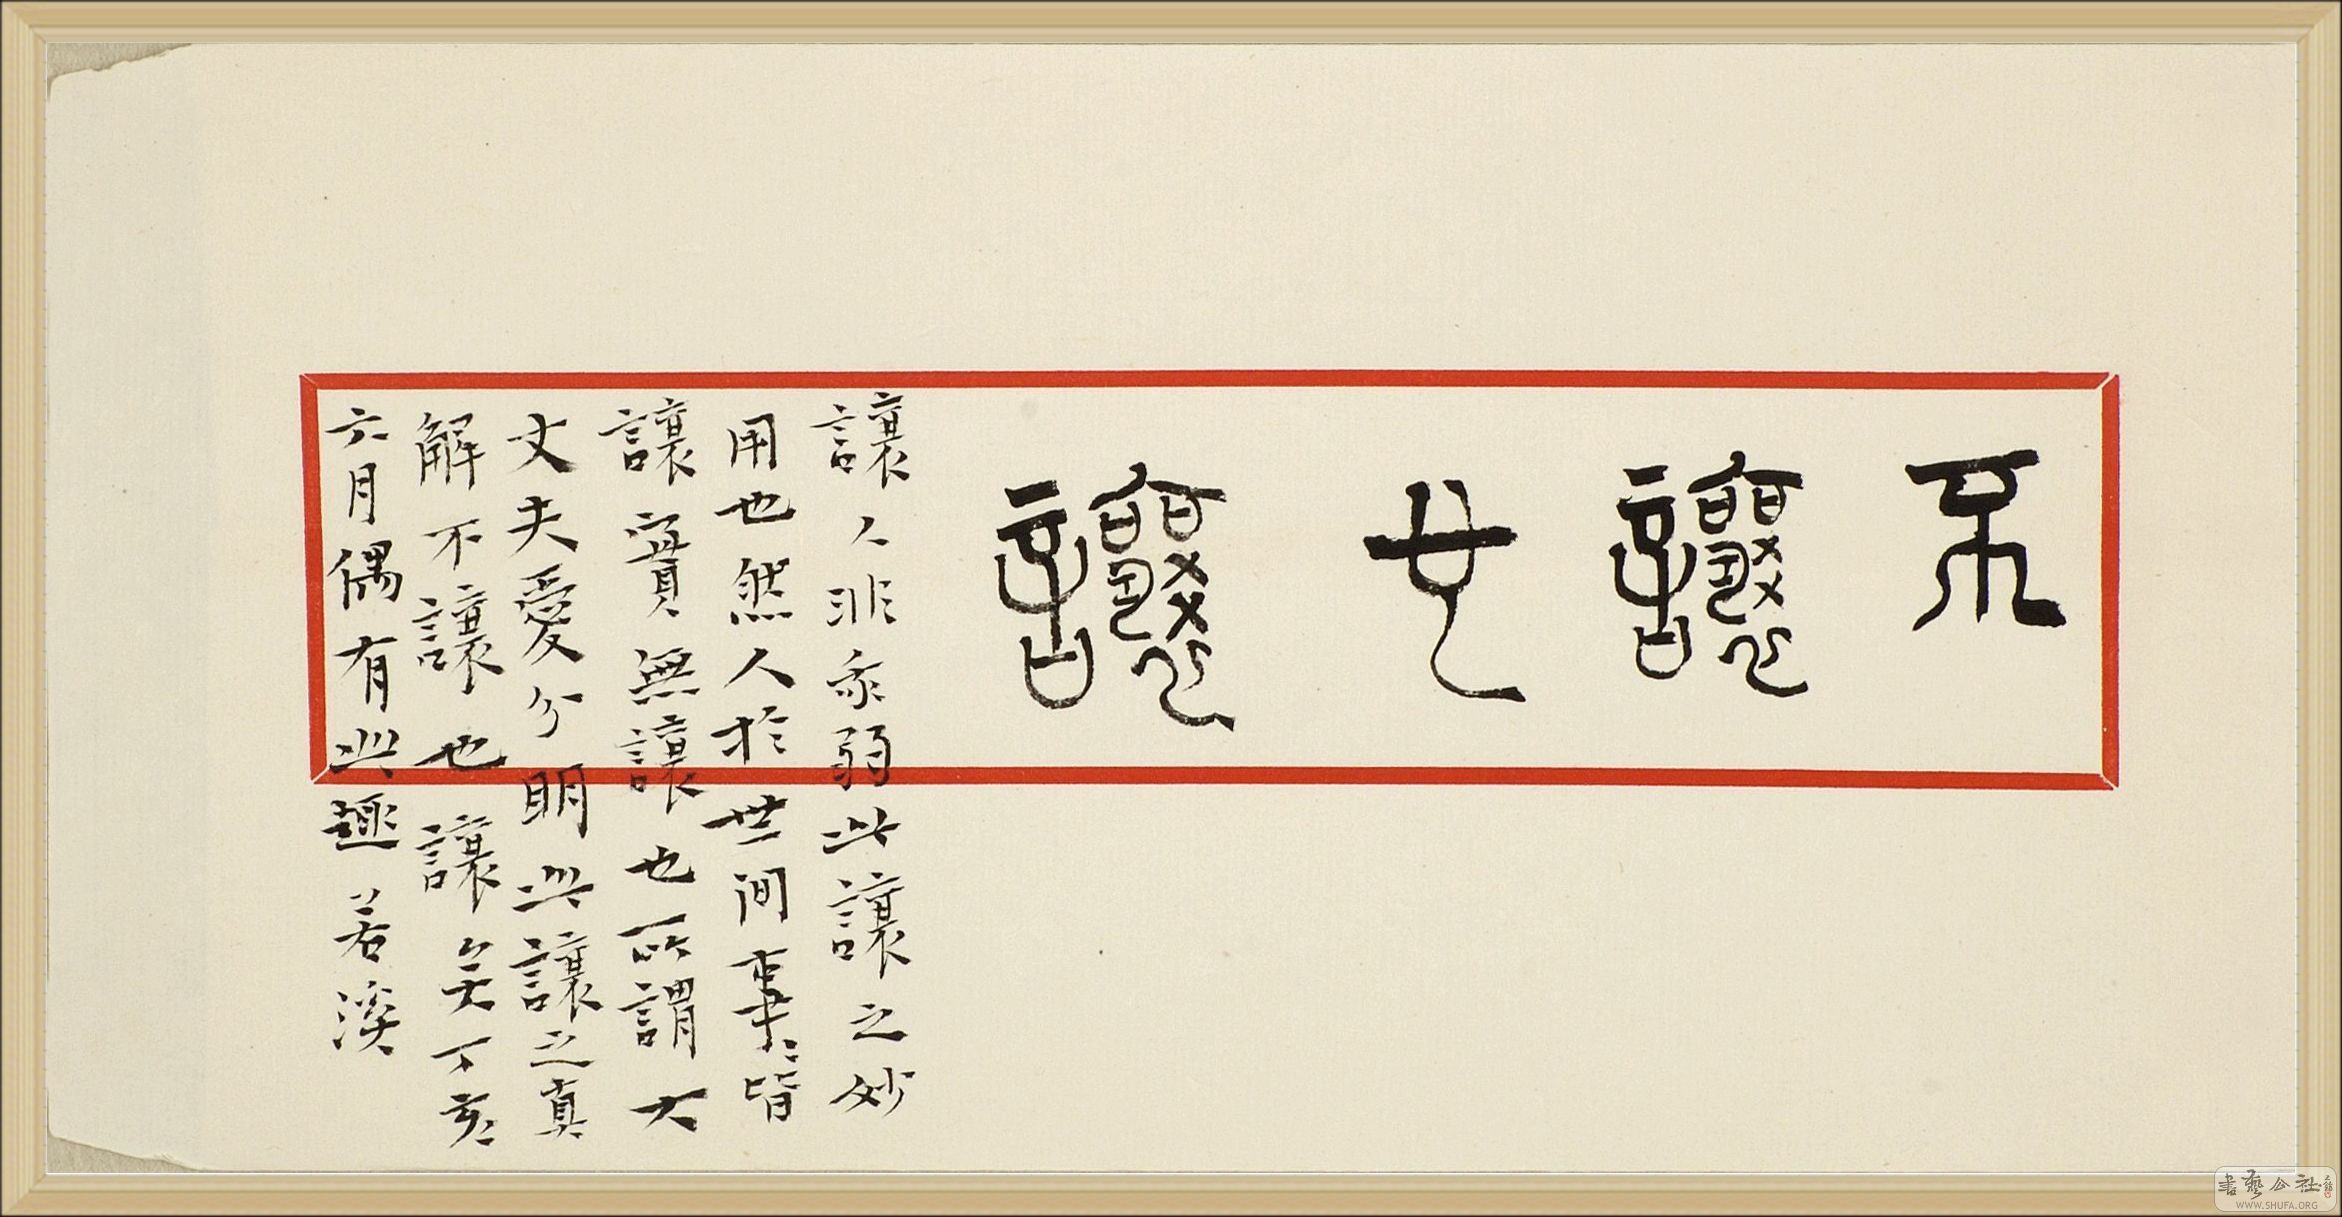 不讓也讓
讓人非示弱此讓之妙
用也然人於世間事〻皆
讓實無讓也所謂大
丈夫愛分明此讓之真
解不讓也讓矣丁亥
六月偶有此趣若溪
書藝公社
WWW.SHUFA.ORG